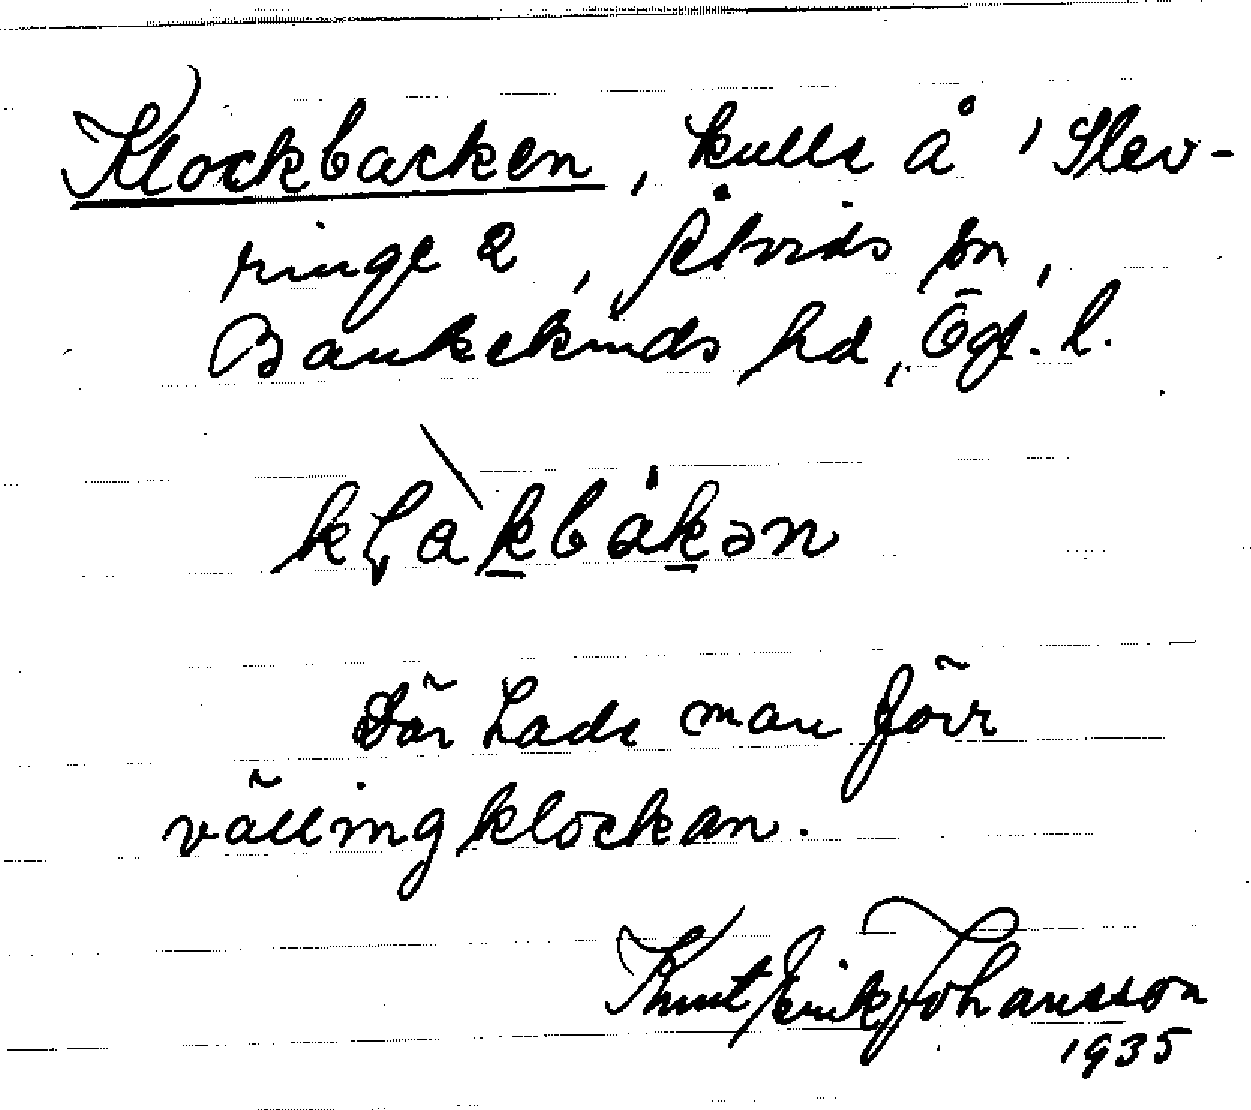 Klockbacken, kulle å 'Slev-
ringe 2, Åtvids sn,
Bankekinds hd, Ög. l.
kḷàkbákən
Där hade man förr
vällingklockan.
Knut Erik Johansson
1935